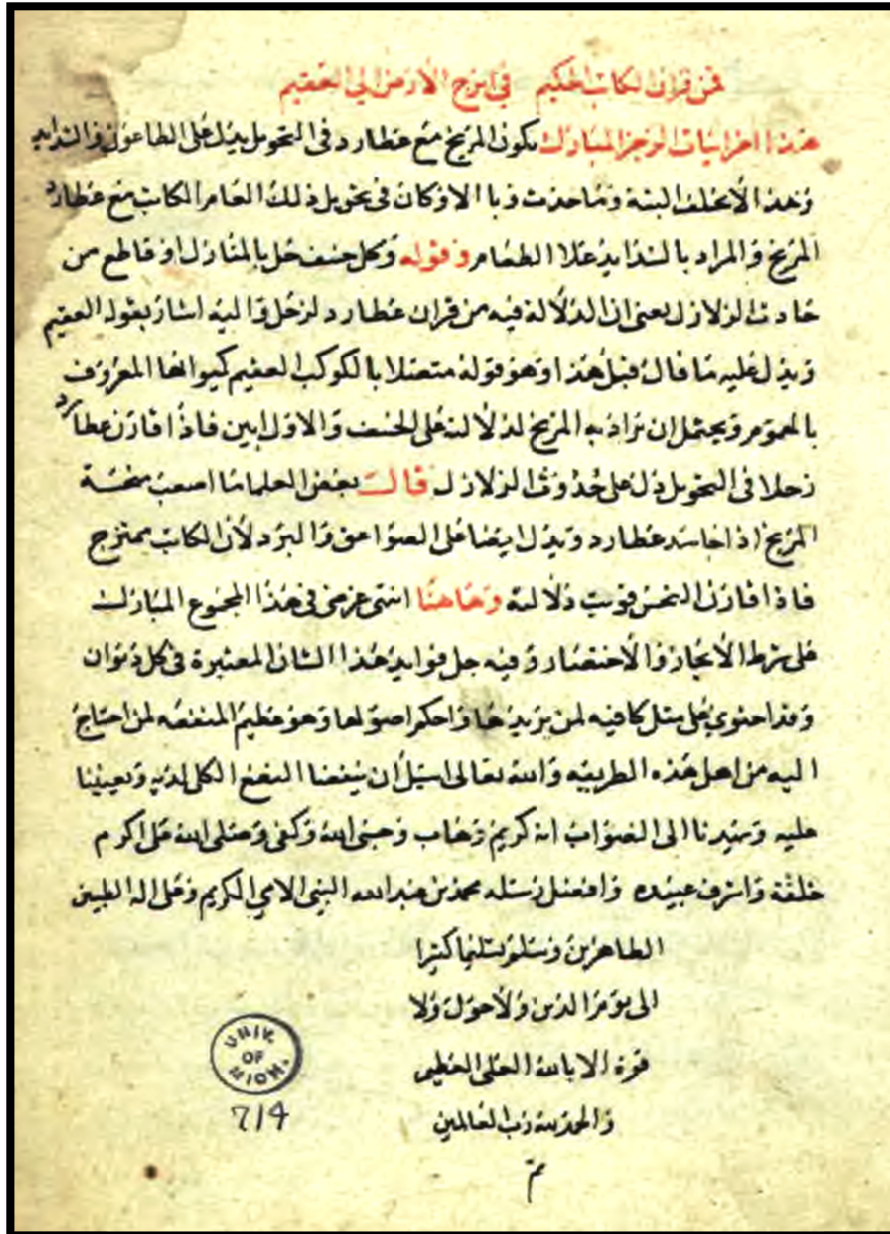 فمن قران الكاتب الحكيم في ابرج الارض الي العقيم
هذا اخر ابيات الرجز المبارك يكون المريخ مع عطارد في التحويل يدل علي الطاعون والشدايد
وهذا لا يخلف البتة وما حدث وبا الا وكان في تحويل ذلك العام الكاتب مع عطارد
المريخ والمراد بالشدايد غلا الطعام وقوله وكل خسف حل بالمنازل او قاطع من
حادث الزلازل يعني ان الدلالة فيه من قران عطارد لزحل واليه اشار بقوله العقيم
ويدل عليه ما قال قبل هذا وهو قوله متصلا بالكوكب العقيم كيوانها المعروف
بالهموم ويحتمل ان يراد به المريخ لدلالته علي الخسف والاول ابين فاذا قارن عطارد
زحلا في التحويل دل علي حدوث الزلازل قالت بعض العلما ما اصعب نحسة
المريخ اذا جاسد عطارد ويدل ايضا علي الصواعق والبرد لان الكاتب ممتزج
فاذا قارن النحس قويت دلالته وهاهنا انتهى غرضي في هذا المجموع المبارك
علي شرط الايجاز والاختصار وفيه جل فوايد هذا الشان المعتبرة في كل ديوان
وقد احتوي علي مثل كافيه لمن يريدها واحكم اصولها وهو عظيم المنفعه لمن احتاج
اليه من اهل هذه الطريقه والله تعالى اسيل ان ينفعنا النفع الكل لديه ويعيننا
عليه ويسيرنا الى الصواب انه كريم وهاب وحسبي الله وكفى وصلى الله علي اكرم
خلقه واشرف عبيده وافضل رسله محمد بن عبد الله النبي الامي الكريم وعلى اله الطيبين
الطاهرين وسلم تسليما كثيرا
الى يوم الدين ولا حول ولا
قوة الا بالله العلي العظيم
والحمد لله رب العالمين
تم
UNIV. OF MICH.
714